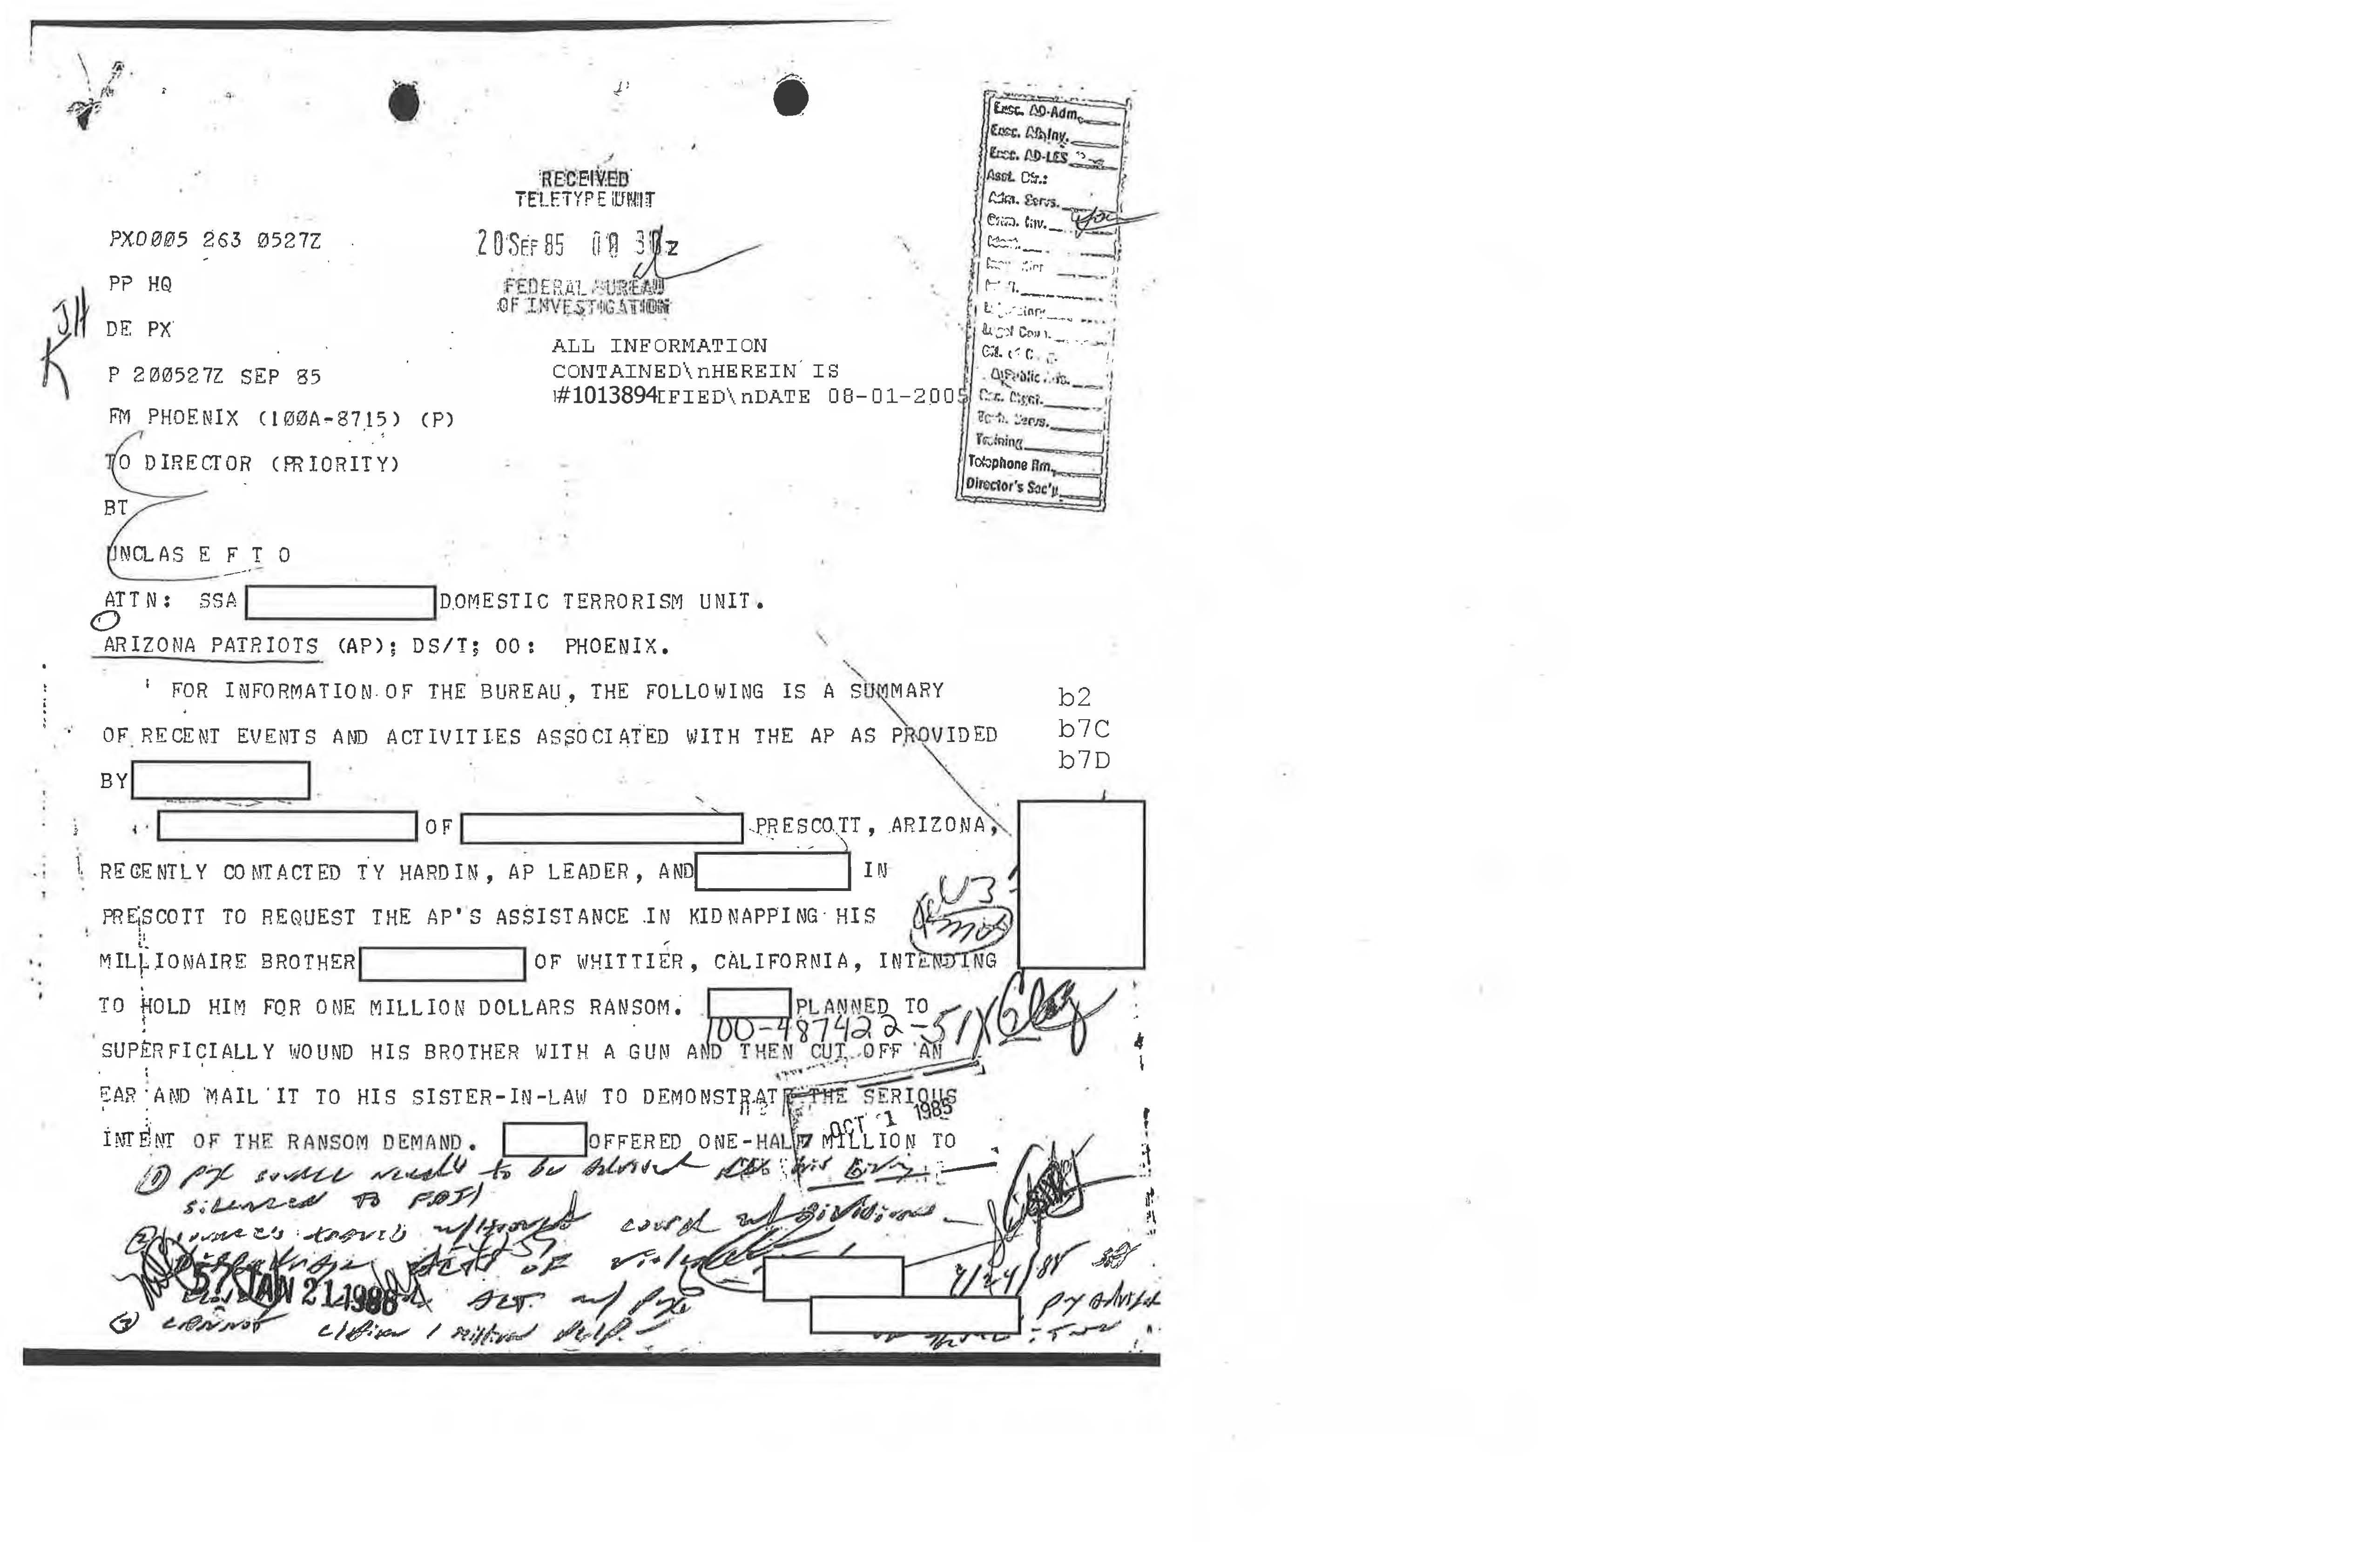 RECEIVED
TELETYPE UNIT
20 SEP 85
FEDERAL BUREAU
OF INVESTIGATION
Exec. AD-Adm.
Exec. AD-Inv.
Exec. AD-LES
Asst. Dir.:
Adm. Servs.
Crim. Inv.
Ident.
Legal Coun.
Training
Telephone Rm.
Director's Sec'y
PX0005 263 0527Z
PP HQ
JH
DE PX
K
P 200527Z SEP 85
FM PHOENIX (100A-8715) (P)
TO DIRECTOR (PRIORITY)
BT
UNCLAS E F T O
ALL INFORMATION
CONTAINED\nHEREIN IS
#1013894EFIED\nDATE 08-01-2005
ATTN: SSA DOMESTIC TERRORISM UNIT.
ARIZONA PATRIOTS (AP); DS/T; OO: PHOENIX.
FOR INFORMATION OF THE BUREAU, THE FOLLOWING IS A SUMMARY
OF RECENT EVENTS AND ACTIVITIES ASSOCIATED WITH THE AP AS PROVIDED
BY
b2
b7C
b7D
OF PRESCOTT, ARIZONA,
RECENTLY CONTACTED TY HARDIN, AP LEADER, AND IN
PRESCOTT TO REQUEST THE AP'S ASSISTANCE IN KIDNAPPING HIS
MILLIONAIRE BROTHER OF WHITTIER, CALIFORNIA, INTENDING
TO HOLD HIM FOR ONE MILLION DOLLARS RANSOM. PLANNED TO
100-487422-51X
SUPERFICIALLY WOUND HIS BROTHER WITH A GUN AND THEN CUT OFF AN
EAR AND MAIL IT TO HIS SISTER-IN-LAW TO DEMONSTRATE THE SERIOUS
OCT 1 1985
INTENT OF THE RANSOM DEMAND. OFFERED ONE-HALF MILLION TO
① PX source needs to be advised
② of
57 JAN 21 1986
③ cannot